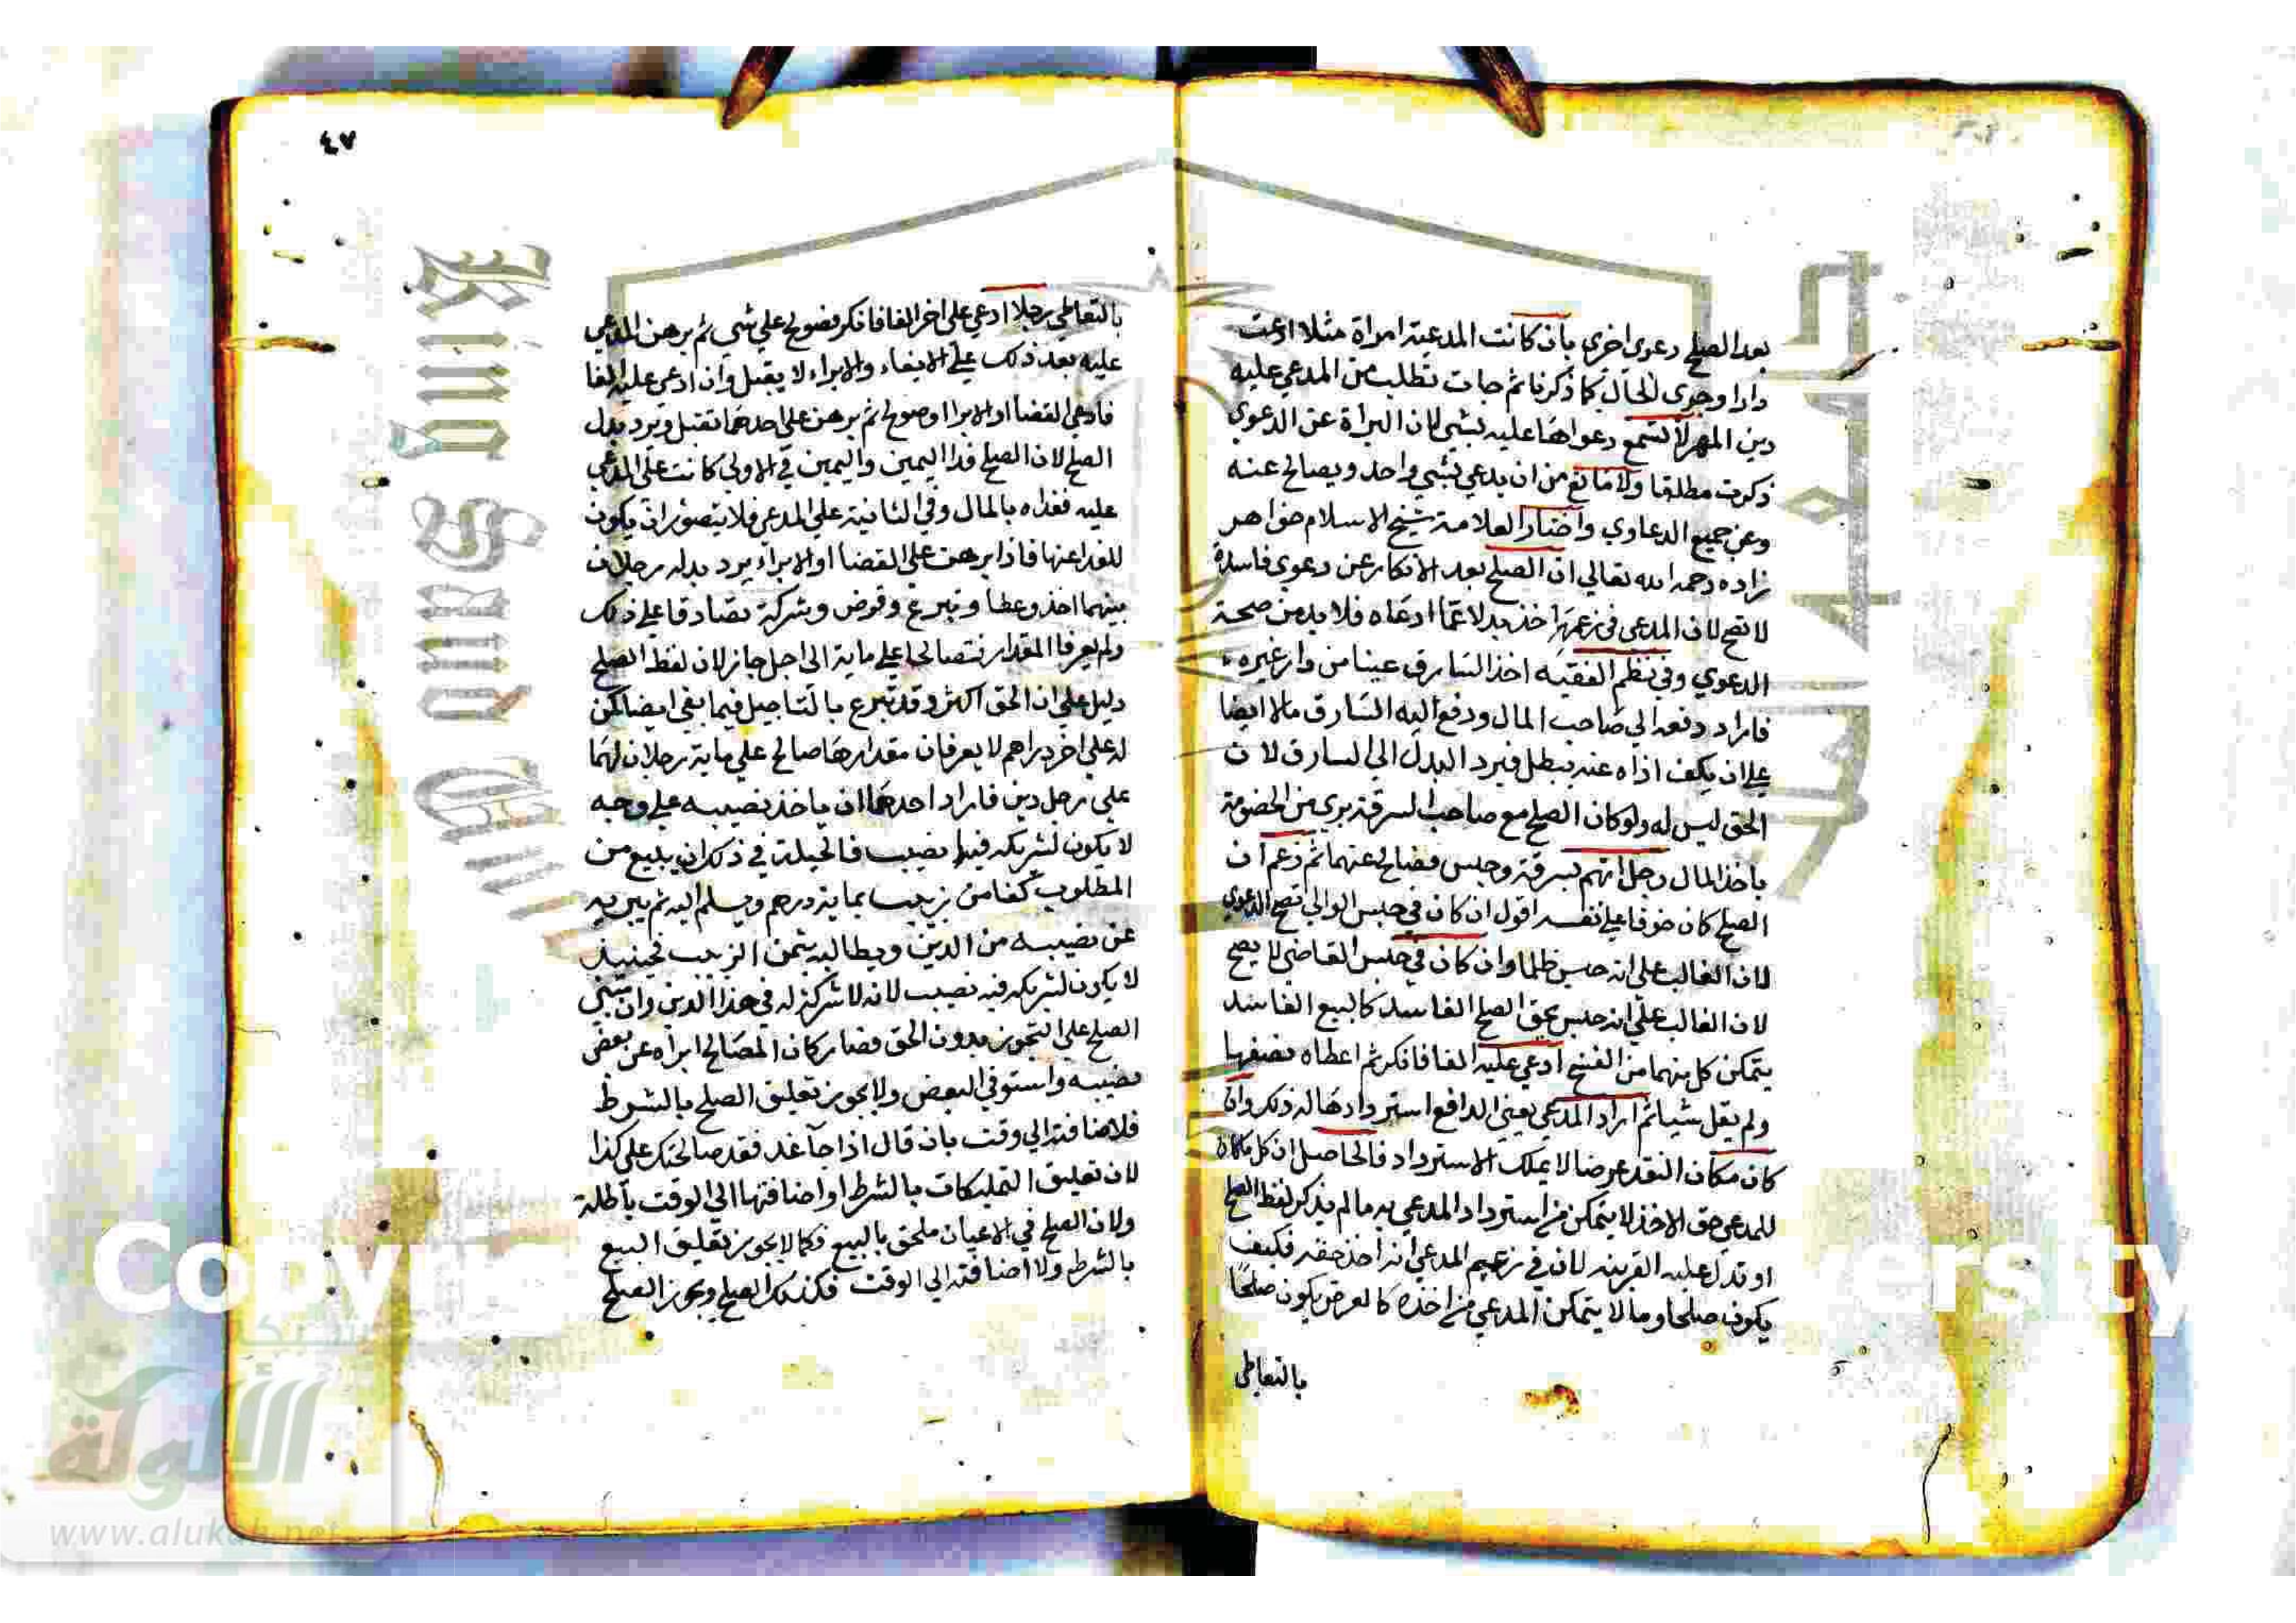 بعد الصلح دعوي اخري بان كانت المدعية امراة مثلا ادعت
دارا وجري الحال كما ذكرنا ثم جات تطلب من المدعي عليه
دين المهر لا تسمع دعواها عليه بشي لان البراة عن الدعوي
ذكرت مطلقا ولا مانع من ان يدعي بشي واحد ويصالح عنه
وعن جميع الدعاوي واختار العلامة شيخ الاسلام خواهر
زاده رحمه الله تعالي ان الصلح بعد الانكار عن دعوي فاسدة
لا تصح لان المدعي في زعمه اخذ بدلا عما ادعاه فلا بد من صحة
الدعوي وفي نظم الفقيه اخذ السارق عينا من دار غيره
فاراد دفعه الي صاحب المال ودفع اليه السارق مالا ايضا
علي ان يكف اذاه عنه فبطل فيرد البدل الي السارق لان
الحق ليس له ولو كان الصلح مع صاحب السرقة بري من الخصومة
باخذ المال رجل اتهم بسرقة وحبس فصالح عنها ثم زعم ان
الصلح كان خوفا علي نفسه اقول ان كان في حبس الوالي تصح الدعوي
لان الغالب علي انه حبس ظلما وان كان في حبس القاضي لا يصح
لان الغالب علي انه حبس بحق الصلح الفاسد كالبيع الفاسد
يتمكن كل منهما من الفسخ ادعي عليه الفا فانكر ثم اعطاه نصفها
ولم يقل شيا ثم اراد المدعي يعني الدافع استردادها له ذلك وان
كان مكان النقد عرضا لا يملك الاسترداد فالحاصل ان كل ما كان
للمدعي حق الاخذ لا يتمكن من استرداد المدعي به ما لم يذكر لفظ الصلح
او تدل عليه القرينه لان في زعم المدعي انه اخذ حقه فكيف
يكون صلحا وما لا يتمكن المدعي من اخذه كالعرض يكون صلحا
بالتعاطي
٤٧
بالتعاطي رجلا ادعي علي اخر الفا فانكر فصولح علي شي ثم برهن المدعي
عليه بعد ذلك علي الايفاء والابراء لا يقبل وان ادعي عليه الفا
فادعي القضا او الابرا وصولح ثم برهن علي احدهما تقبل ويرد بدل
الصلح لان الصلح فدا اليمين واليمين في الاولي كانت علي المدعي
عليه ففداه بالمال وفي الثانية علي المدعي فلا يتصور ان يكون
للفدا عنها فاذا برهن علي القضا او الابراء يرد بدله رجلان
بينهما اخذ وعطا وتبرع وقرض وشركة تصادقا علي ذلك
ولم يعرفا المقدار فتصالحا علي ماية الي اجل جاز لان لفظ الصلح
دليل علي ان الحق اكثر وقد تبرع بالتاجيل فيما بقي ايضا لكن
له علي اخر دراهم لا يعرفان مقدارها صالح علي ماية رجلان لهما
علي رجل دين فاراد احدهما ان ياخذ نصيبه علي وجه
لا يكون لشريكه فيه نصيب فالحيلة في ذلك ان يبيع من
المطلوب كفا من زبيب بماية درهم ويسلم اليه ثم يبريه
عن نصيبه من الدين ويطالبه بثمن الزبيب فحينيذ
لا يكون لشريكه فيه نصيب لانه لا شركة له في هذا الدين وان مبني
الصلح علي التجوز بدون الحق فصار كان المصالح ابراه عن بعض
نصيبه واستوفي البعض ولا يجوز تعليق الصلح بالشرط
فلاضافته الي وقت بان قال اذا جا غد فقد صالحتك علي كذا
لان تعليق التمليكات بالشرط او اضافتها الي الوقت باطلة
ولان الصلح في الاعيان ملحق بالبيع فكما لا يجوز تعليق البيع
بالشرط ولا اضافته الي الوقت فكذلك الصلح ويجوز الصلح
Copy ersity
King Saud Univ
شبكة
الألوكة
www.alukah.net